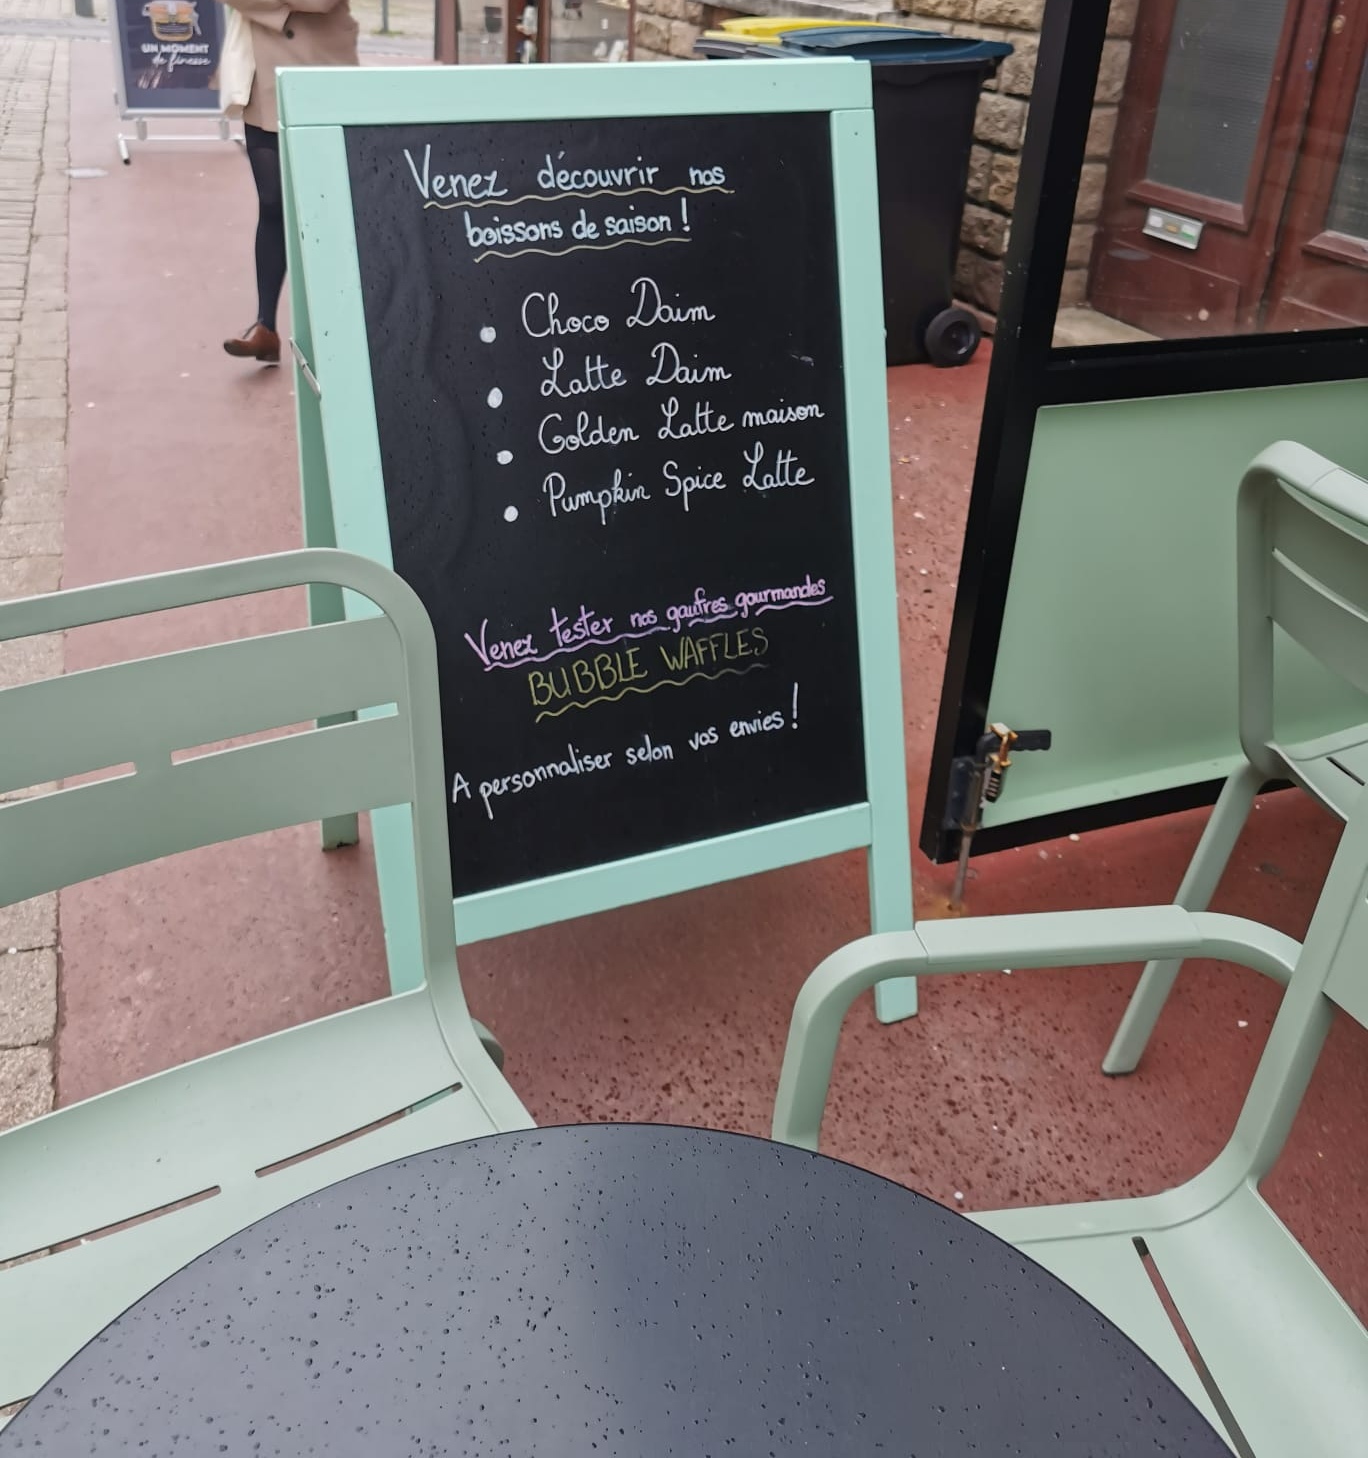 UN MOMENT
de finesse
Venez découvrir nos
boissons de saison !
• Choco Daim
• Latte Daim
• Golden Latte maison
• Pumpkin Spice Latte
Venez tester nos gaufres gourmandes
BUBBLE WAFFLES
A personnaliser selon vos envies !